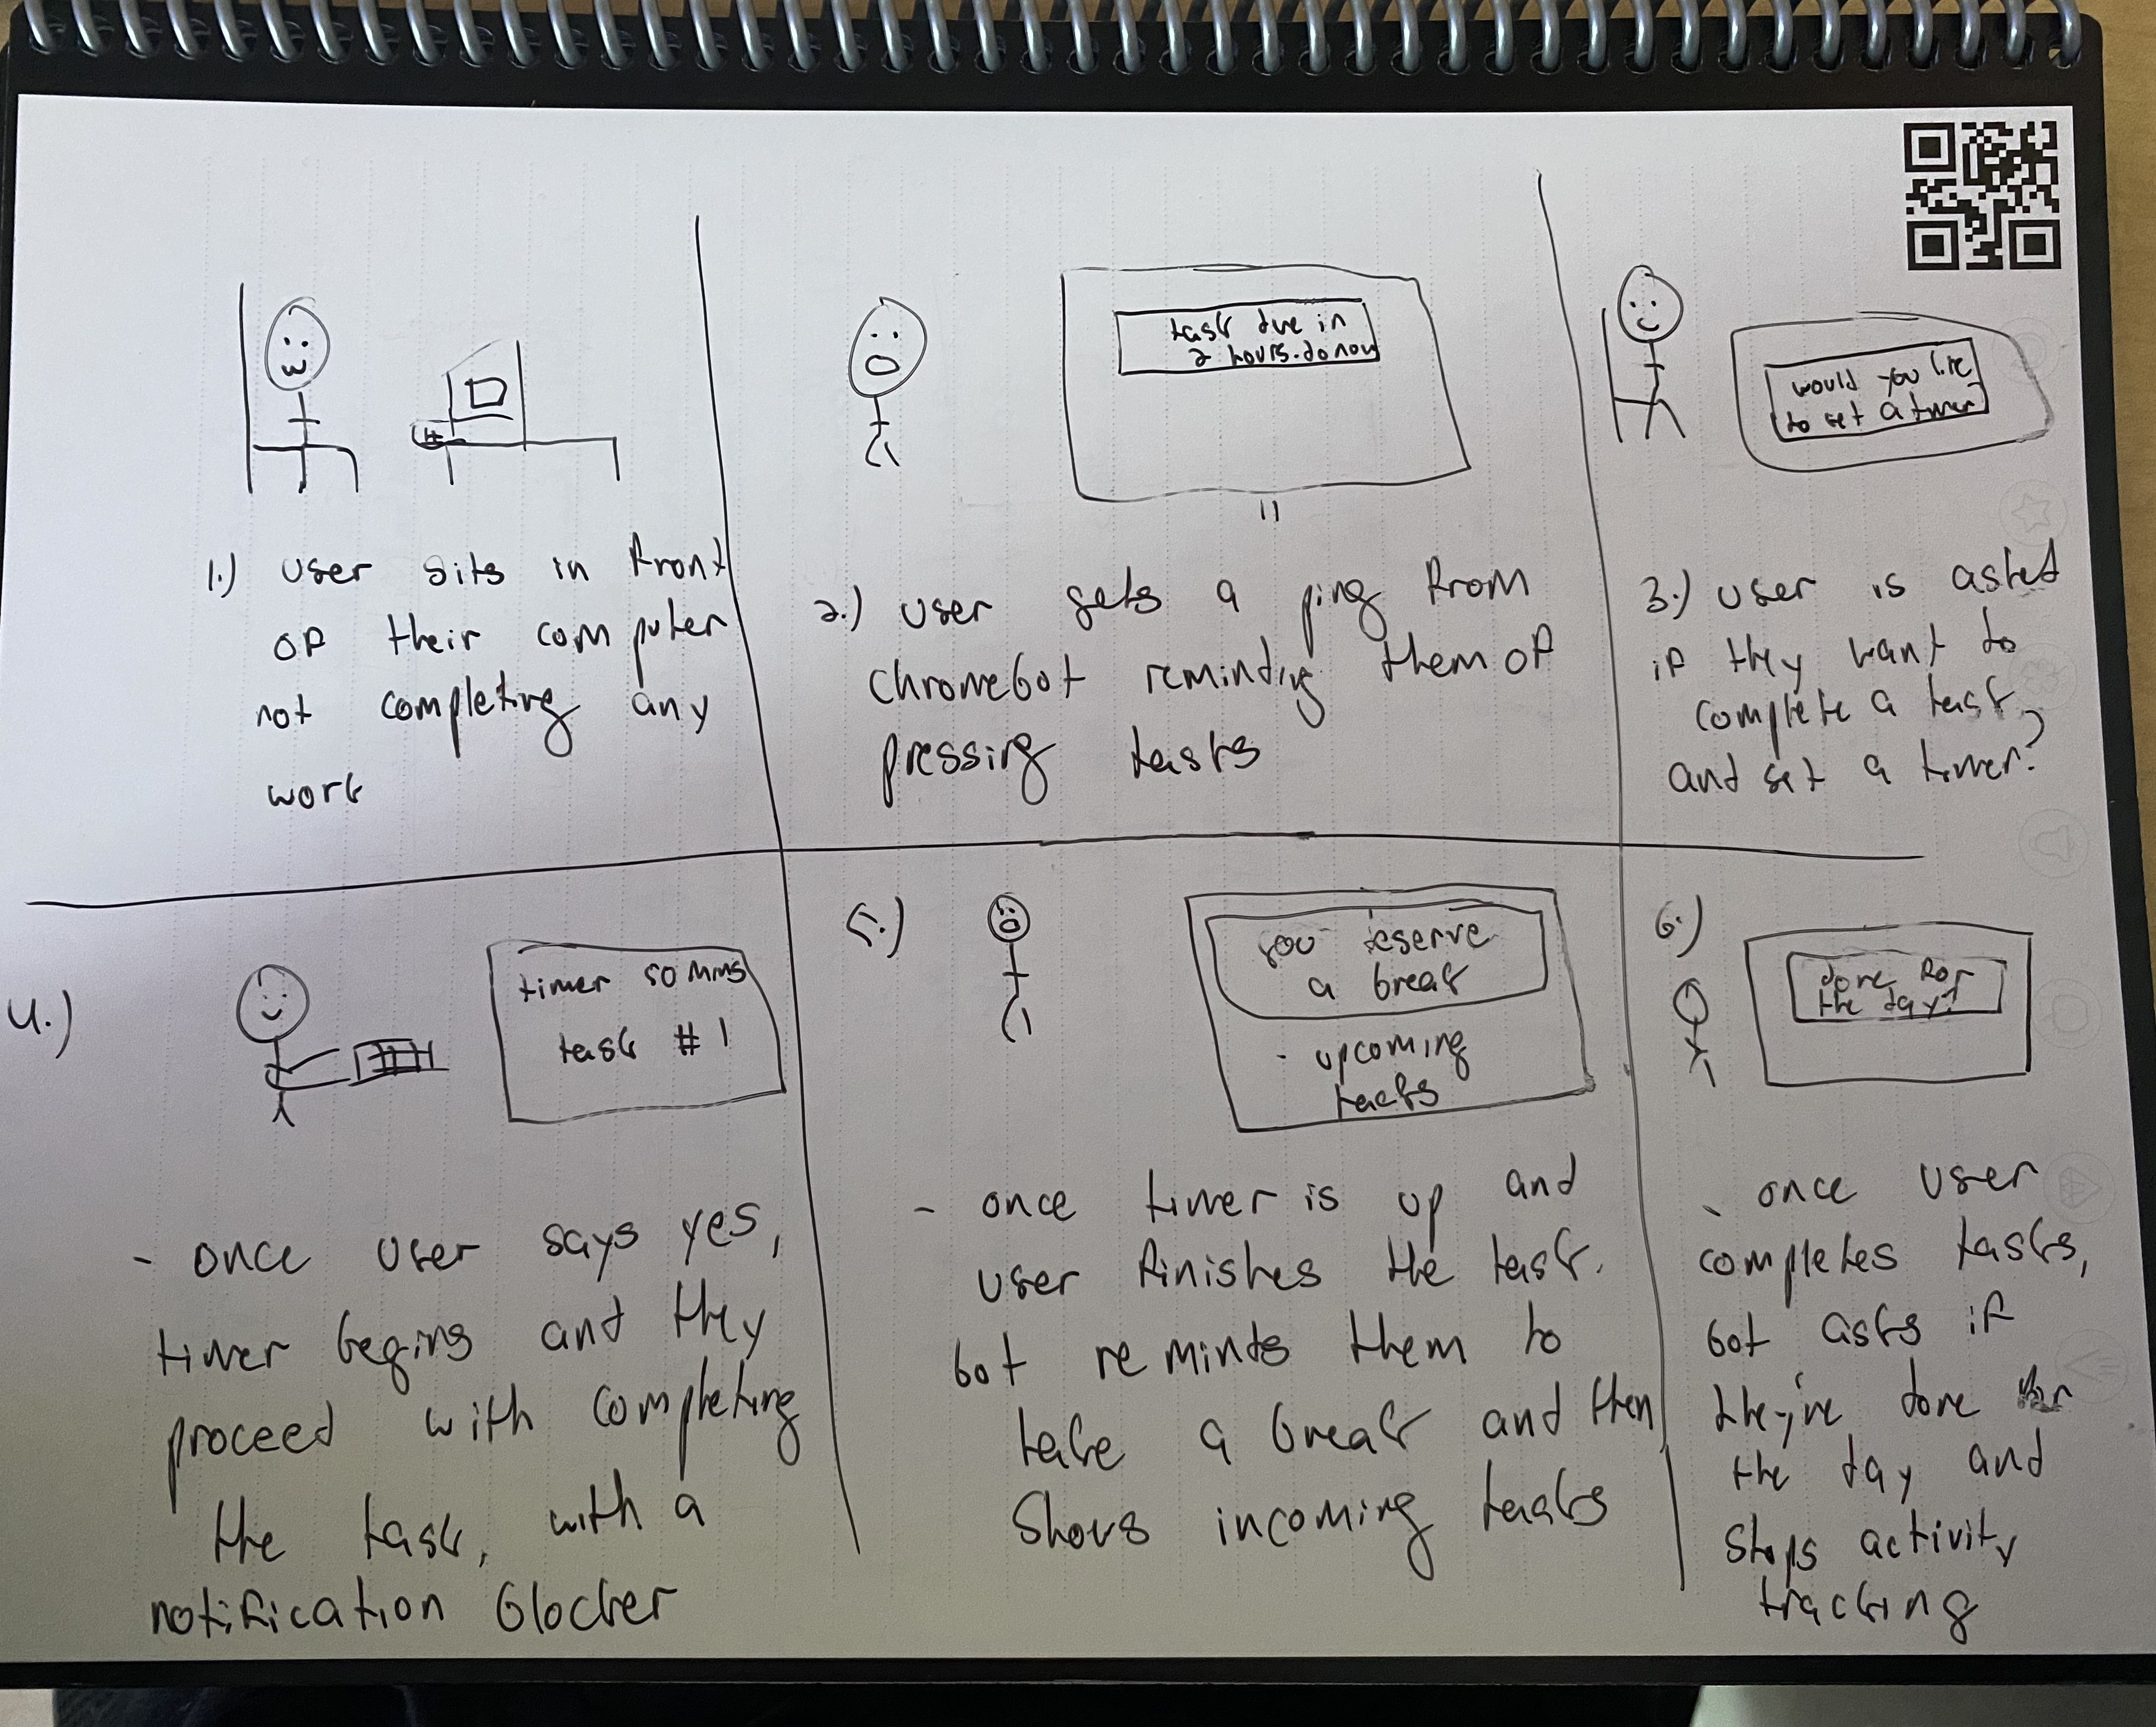 task due in
2 hours. do now
would you like
to set a timer
1.) user sits in front
of their computer
not completing any
work
2.) user gets a ping from
chromebot reminding them of
pressing tasks
3.) user is asked
if they want to
complete a task
and set a timer?
4.)
timer 50 mins
task # 1
- once user says yes,
timer begins and they
proceed with completing
the task, with a
notification blocker
5.)
you deserve
a break
- upcoming
tasks
- once timer is up and
user finishes the task.
bot reminds them to
take a break and then
shows incoming tasks
6.)
done for
the day?
- once user
completes tasks,
bot asks if
they're done for
the day and
stops activity
tracking